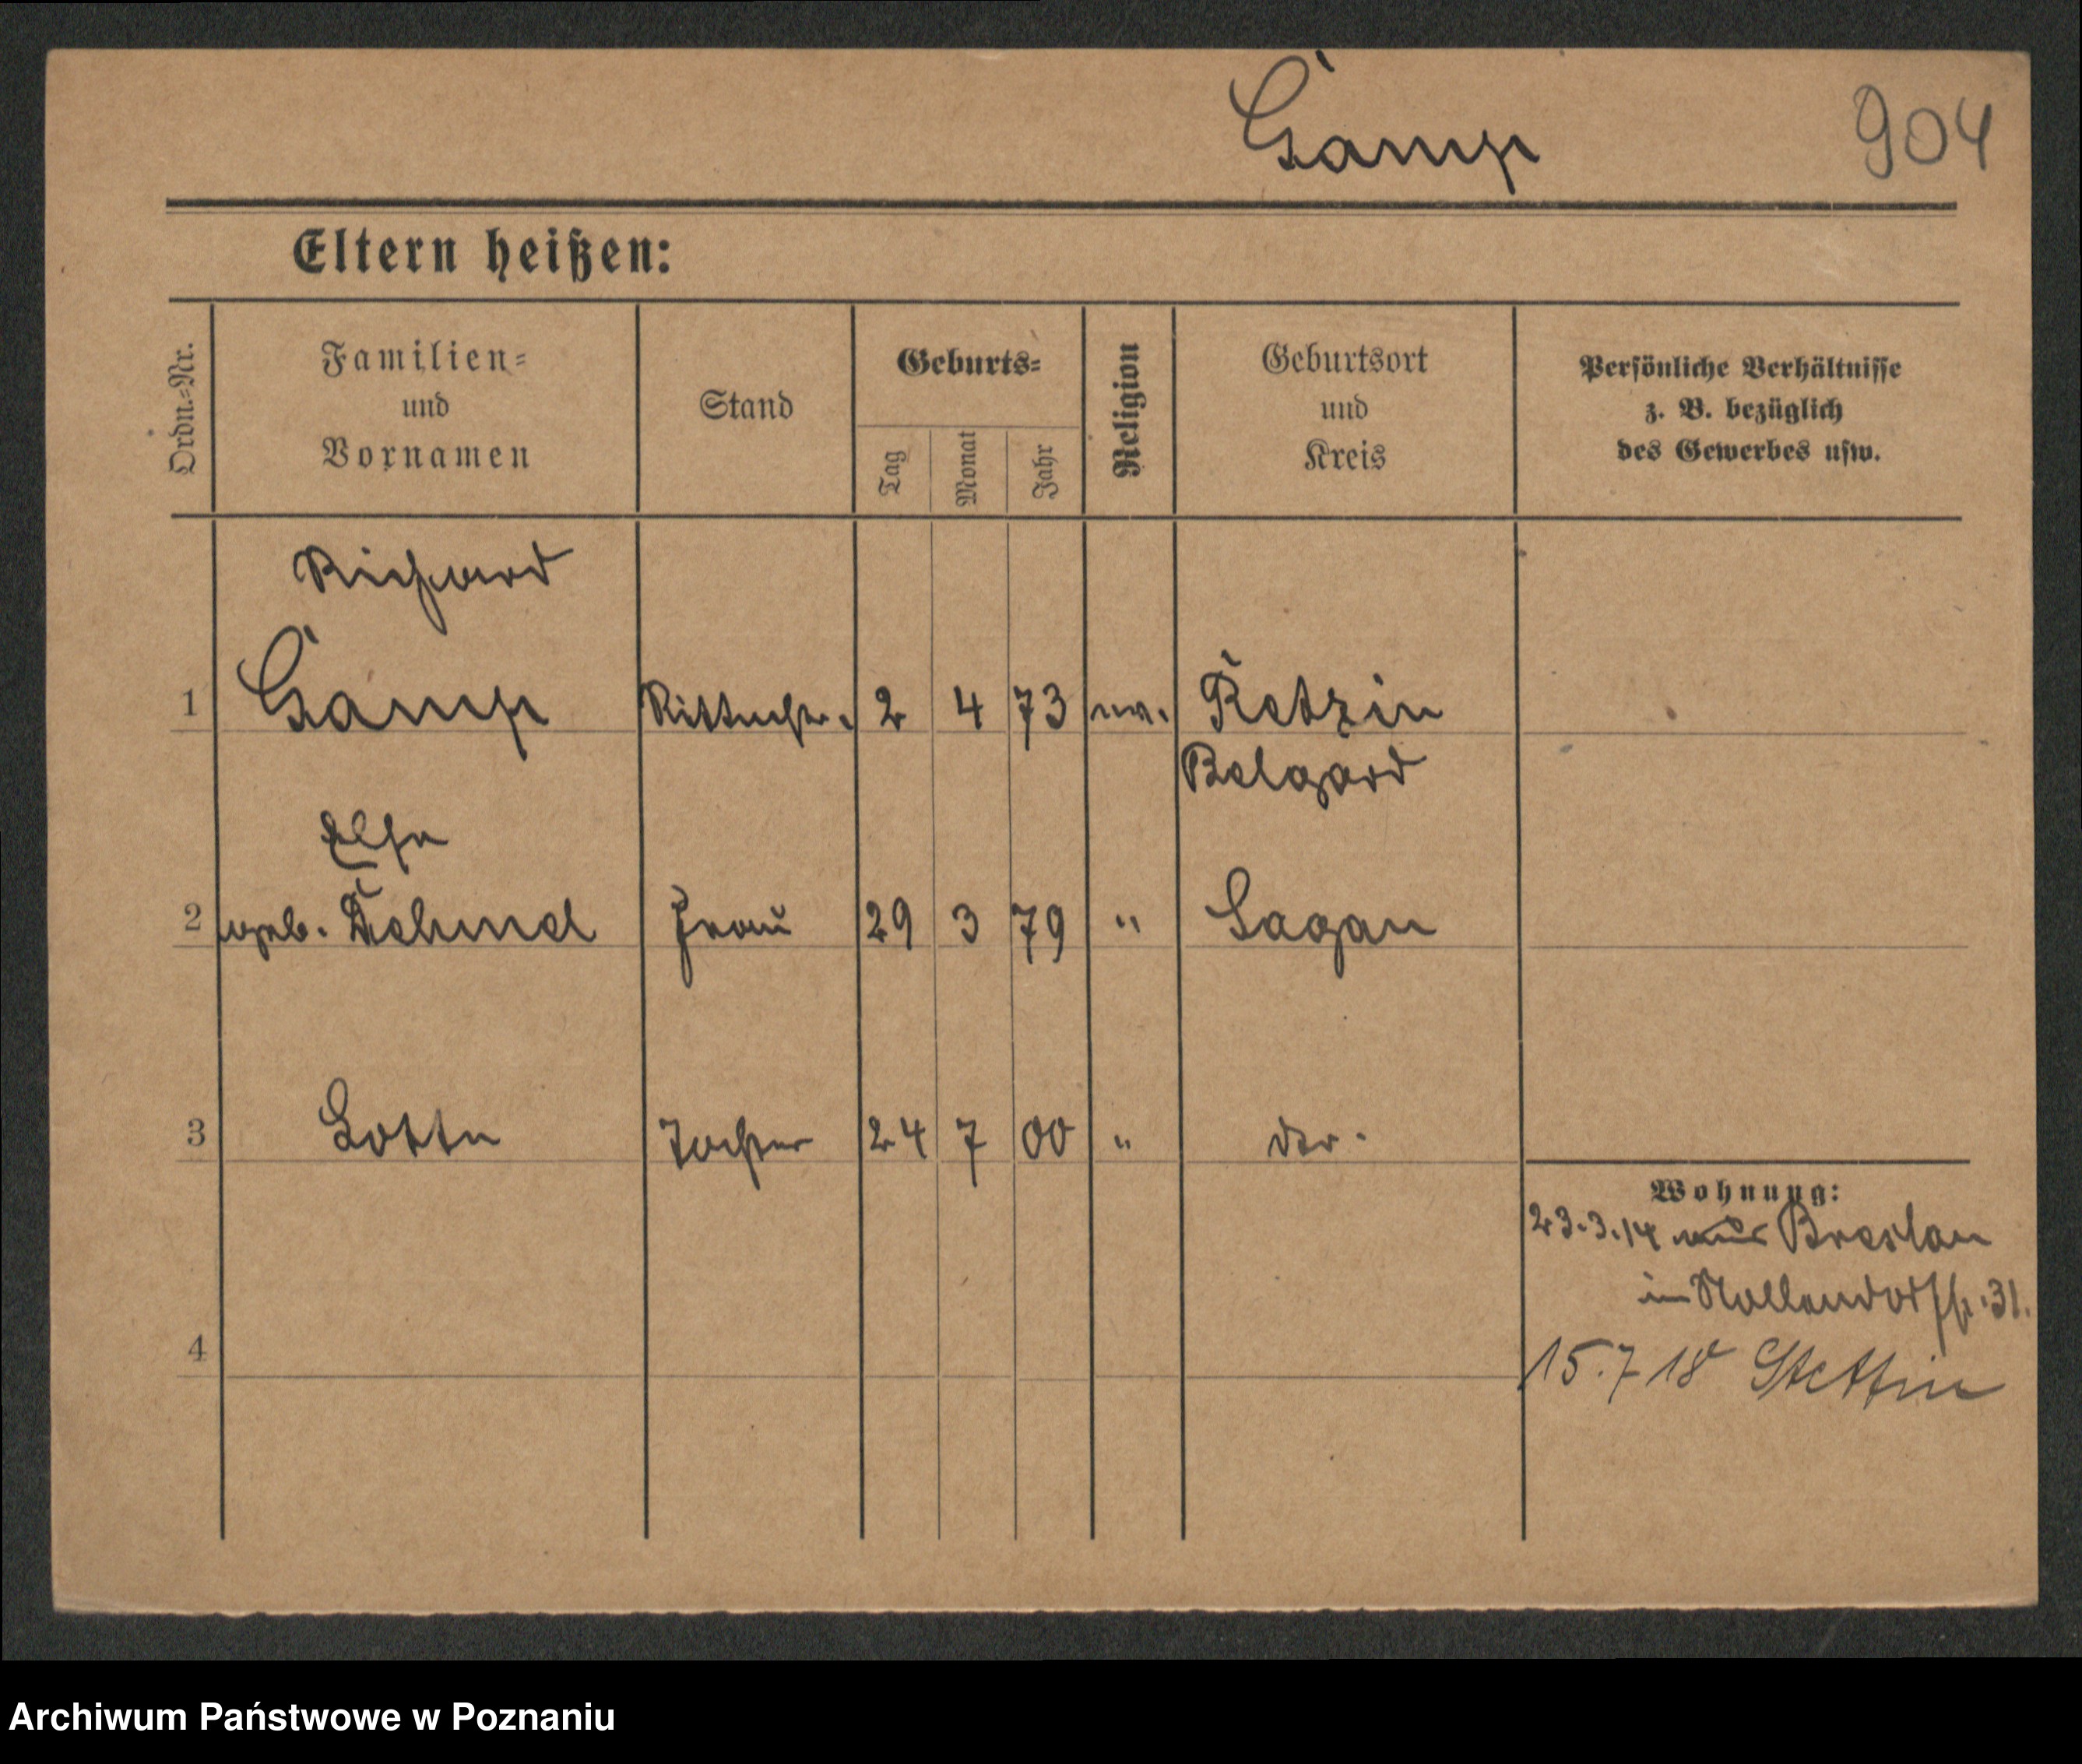 Gamp
904
Eltern heißen:
Ordn.-Nr.
Familien-
und
Vornamen
Stand
Geburts-
Tag
Monat
Jahr
Religion
Geburtsort
und
Kreis
Persönliche Verhältnisse
z. B. bezüglich
des Gewerbes usw.
Richard
1 Gamp Rittmstr. 2 4 73 ev. Retzin
Belgard
Else
2 geb. Frau 29 3 79 " Sagan
3 Lotte Tochter 24 7 00 "
Wohnung:
23.3.14 aus Breslau
in Nollendorfstr. 31.
4
15.7 18 Stettin
Archiwum Państwowe w Poznaniu